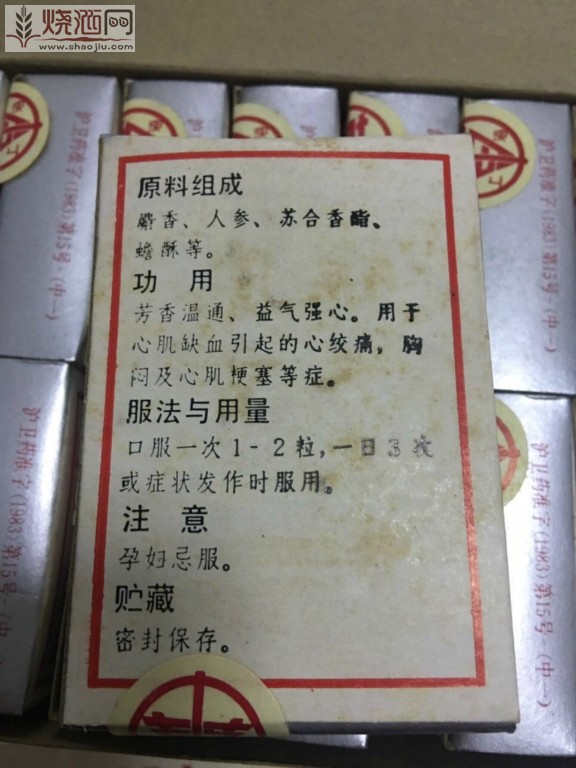 烧酒网
www.shaojiu.com
沪卫药准字(1983)第15号-(中一)
沪卫药准字(1983)第15号-(中一)
原料组成
麝香、人参、苏合香酯、
蟾酥等。
功 用
芳香温通、益气强心。用于
心肌缺血引起的心绞痛,胸
闷及心肌梗塞等症。
服法与用量
口服一次1-2粒,一日3次
或症状发作时服用。
注 意
孕妇忌服。
贮藏
密封保存。
沪卫药准字(1983)第15号-(中一)
沪卫药准字(1983)第15号-(中一)